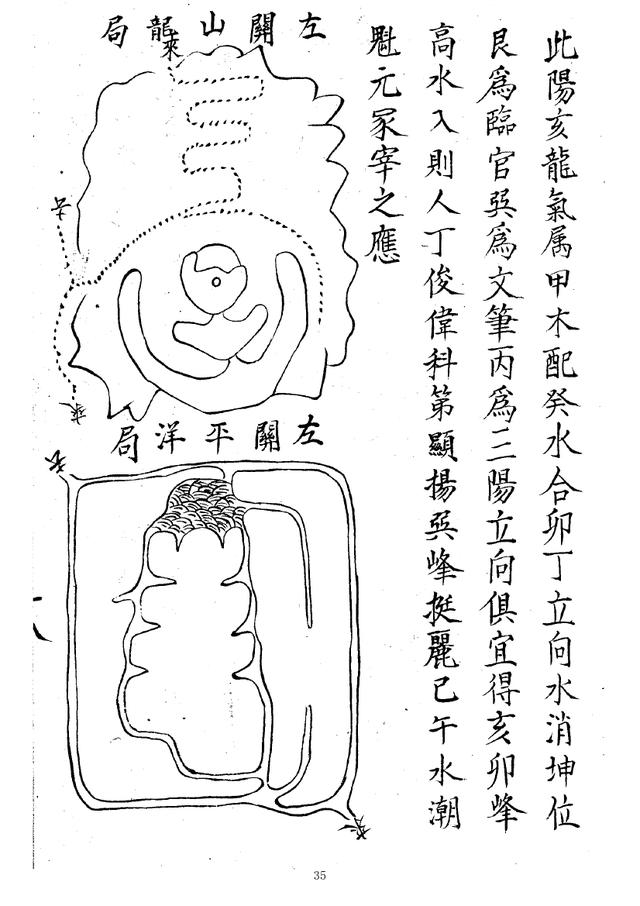 此陽亥龍氣属甲木配癸水合卯丁立向水消坤位
艮爲臨官巽爲文筆丙爲三陽立向俱宜得亥卯峰
高水入則人丁俊偉科第顯揚巽峰挺麗已午水潮
魁元冢宰之應
左關山龍局
來
去
來
左關平洋局
去
來
35